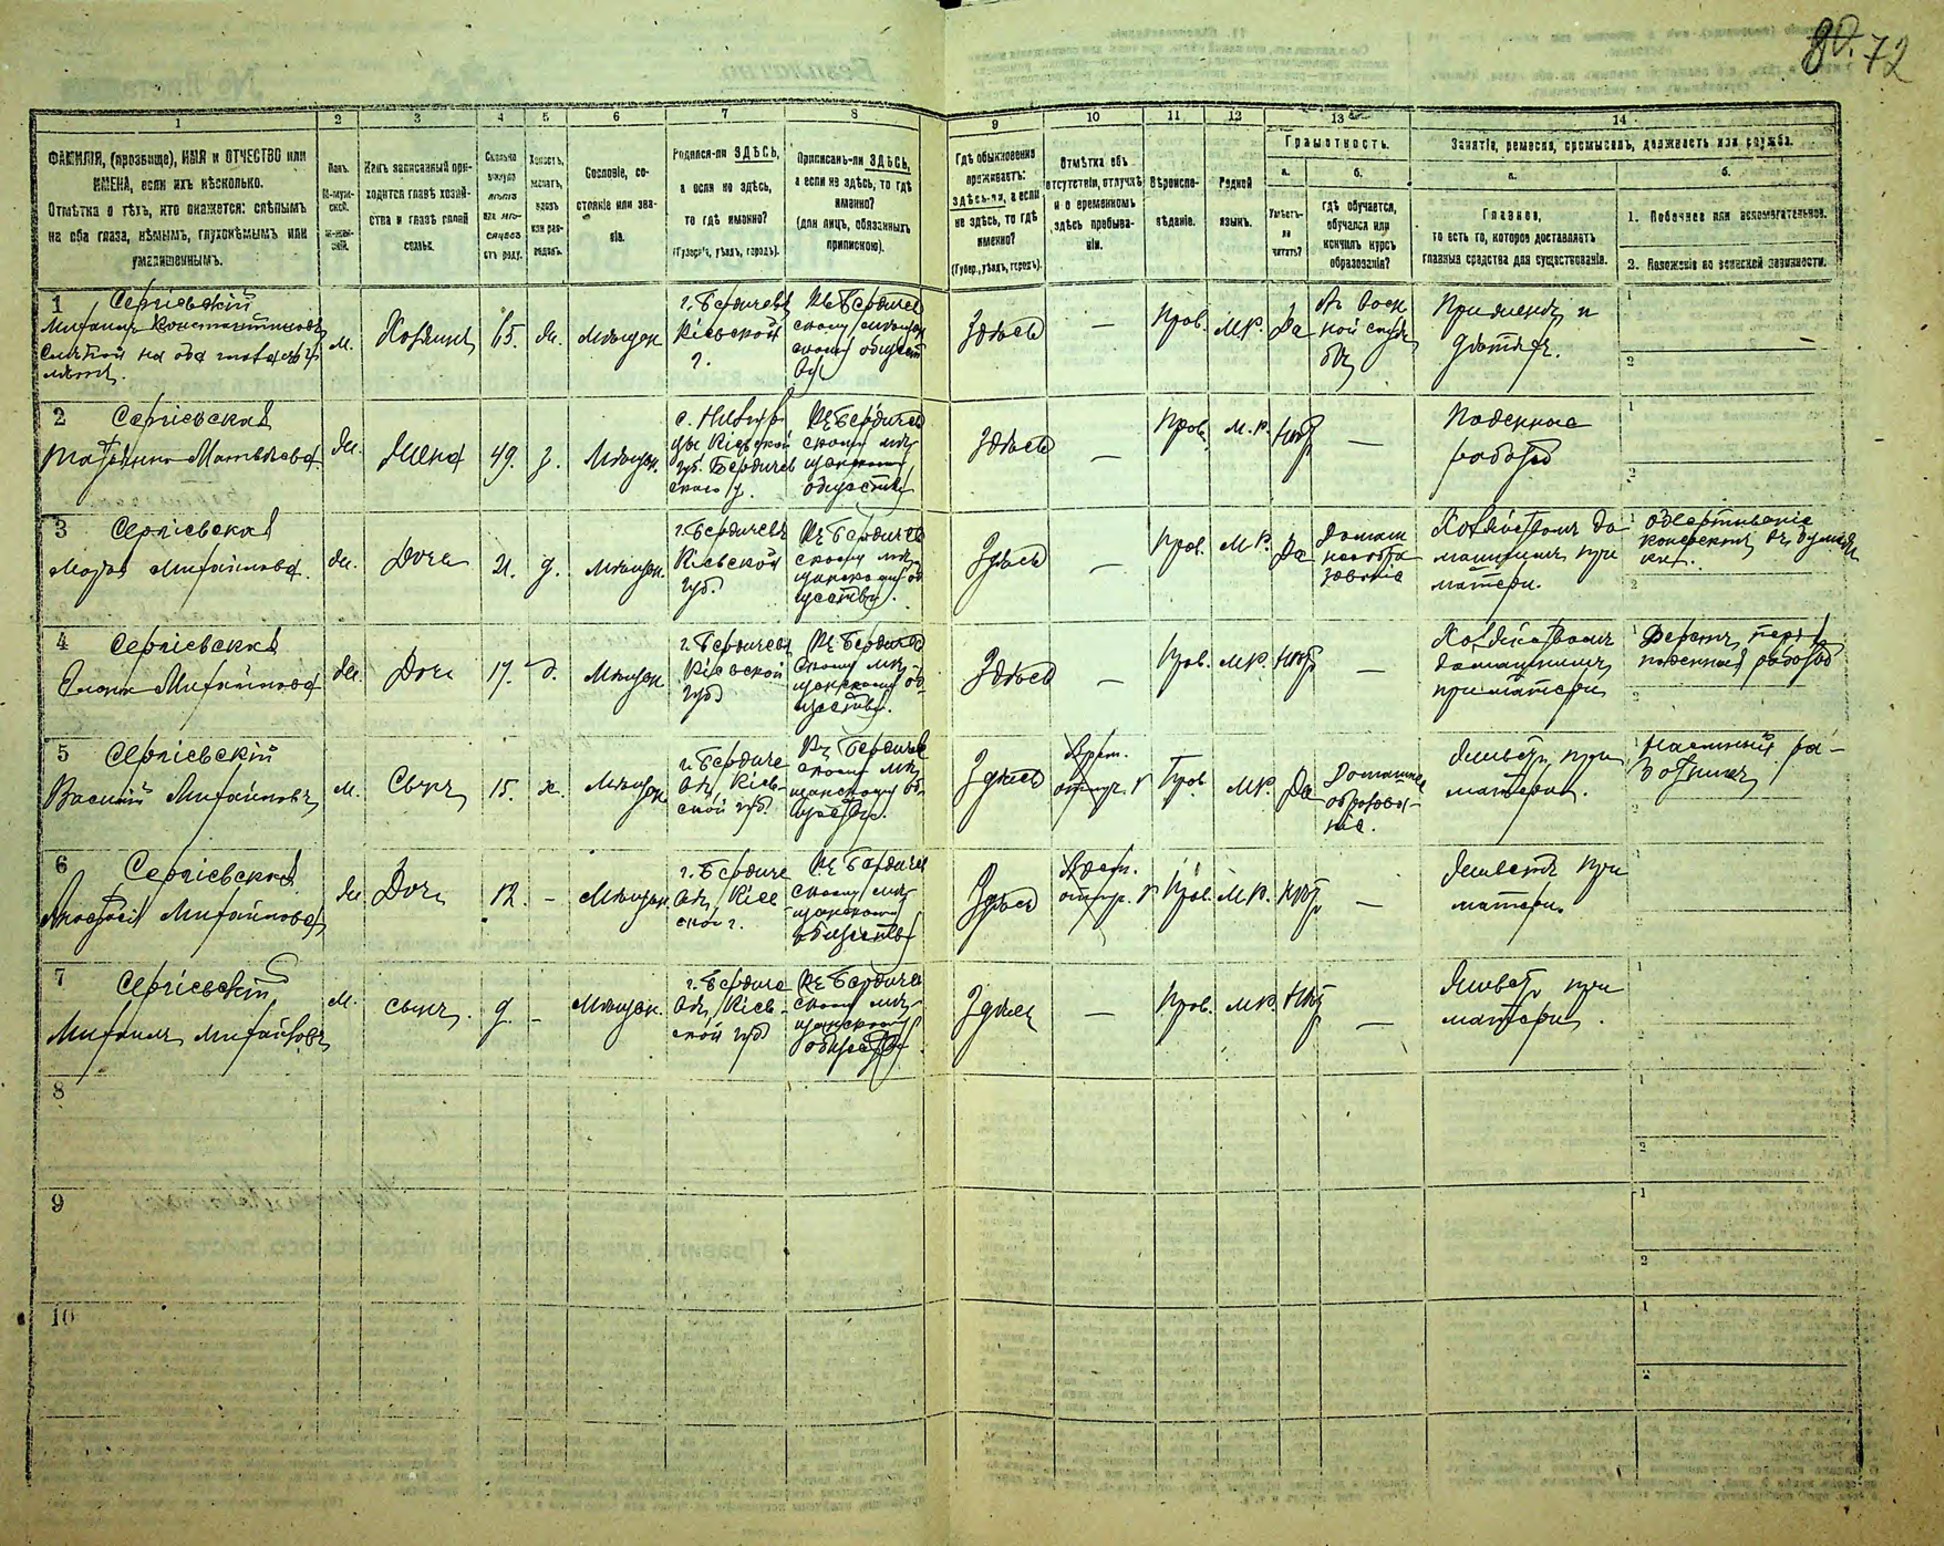 80. 72
1 2 3 4 5 6 7 8 9 10 11 12 13 14
ФАМИЛІЯ, (прозвище), ИМЯ и ОТЧЕСТВО или
ИМЕНА, если ихъ нѣсколько.
Отмѣтка о тѣхъ, кто окажется: слѣпымъ
на оба глаза, нѣмымъ, глухонѣмымъ или
умалишеннымъ.
Полъ.
М-муж-
ской.
Ж-жен-
скій.
Какъ записанный при-
ходится главѣ хозяй-
ства и главѣ своей
семьи.
Сколько
минуло
лѣтъ
или мѣ-
сяцевъ
отъ роду.
Холостъ,
женатъ,
вдовъ
или раз-
веденъ.
Сословіе, со-
стояніе или зва-
ніе.
Родился-ли ЗДѢСЬ,
а если не здѣсь,
то гдѣ именно?
(Губернія, уѣздъ, городъ).
Приписанъ-ли ЗДѢСЬ,
а если не здѣсь, то гдѣ
именно?
(для лицъ, обязанныхъ
припискою).
Гдѣ обыкновенно
проживаетъ:
здѣсь-ли, а если
не здѣсь, то гдѣ
именно?
(Губер., уѣздъ, городъ).
Отмѣтка объ
отсутствіи, отлучкѣ
и о временномъ
здѣсь пребыва-
ніи.
Вѣроиспо-
вѣданіе.
Родной
языкъ.
Грамотность.
а.
Умѣетъ-
ли
читать?
б.
Гдѣ обучается,
обучался или
кончилъ курсъ
образованія?
Занятіе, ремесло, промыселъ, должность или служба.
а.
Главное,
то есть то, которое доставляетъ
главныя средства для существованія.
б.
1. Побочное или вспомогательное.
2. Положеніе по воинской повинности.
1 Сергіевскій
Михаилъ Константиновъ
Слѣпой на оба глаза
м.
Хозяинъ
65.
ж.
Мѣщан
г. Бердичевъ
Кіевской
г.
Къ Бердичев
скому мѣщан
скому общест
ву
Здѣсь
—
Прав.
М.Р.
Да
Въ воен
ной служ
бѣ
При женѣ и
дѣтяхъ.
—
2 Сергіевская
Татьяна Матвѣева
Ж.
Жена
49.
з.
Мѣщан.
Кіевской
губ. Бердичев
скаго у.
Къ Бердичев
скому мѣ
щанскому
обществу
Здѣсь
—
Прав.
М.Р.
Нѣтъ
—
Поденная
работа
3 Сергіевская
Михайлова.
Ж.
Дочь
21.
д.
Мѣщан.
г. Бердичевъ
Кіевской
губ.
Къ Бердичев
скому мѣ
щанскому об
ществу.
Здѣсь
—
Прав.
М.Р.
Да
Домаш
нее обра
зованіе
Хозяйствомъ до
машнимъ при
матери.
Обвертываніе
конфектъ въ бумаж
ки.
4 Сергіевская
Елена Михайлова
Ж.
Дочь
17.
д.
Мѣщан
г. Бердичевъ
Кіевской
губ
Къ Бердичев
скому мѣ-
щанскому об-
ществу.
Здѣсь
—
Прав.
М.Р.
Нѣтъ
—
Хозяйствомъ
домашнимъ
при матери
поденная работа
5 Сергіевскій
Василій Михайловъ
М.
Сынъ
15.
х.
Мѣщан
г. Бердиче
въ, Кіев-
ской губ.
Къ Бердичев
скому мѣ
щанскому об-
ществу.
Здѣсь
Врем.
отлуч.
Прав
М.Р.
Да
Домашнее
образова-
ніе.
Живетъ при
матери.
ра-
ботникъ
6 Сергіевская
Анастасія Михайлова
Ж
Дочь
12.
-
Мѣщан.
г. Бердиче
въ, Кіев
ской г.
Къ Бердичев
скому мѣ-
щанскому
обществу
Здѣсь
Врем.
отлуч.
Прав.
М.Р.
Нѣтъ
—
Живетъ при
матери.
7 Сергіевскій
Михаилъ Михайловъ
М.
сынъ.
9.
-
Мѣщан.
г. Бердиче
въ, Кіев-
ской губ
Къ Бердичев
скому мѣ-
щанскому
обществу
Здѣсь
—
Прав.
М.Р.
Нѣтъ
—
Живетъ при
матери.
8
9
10